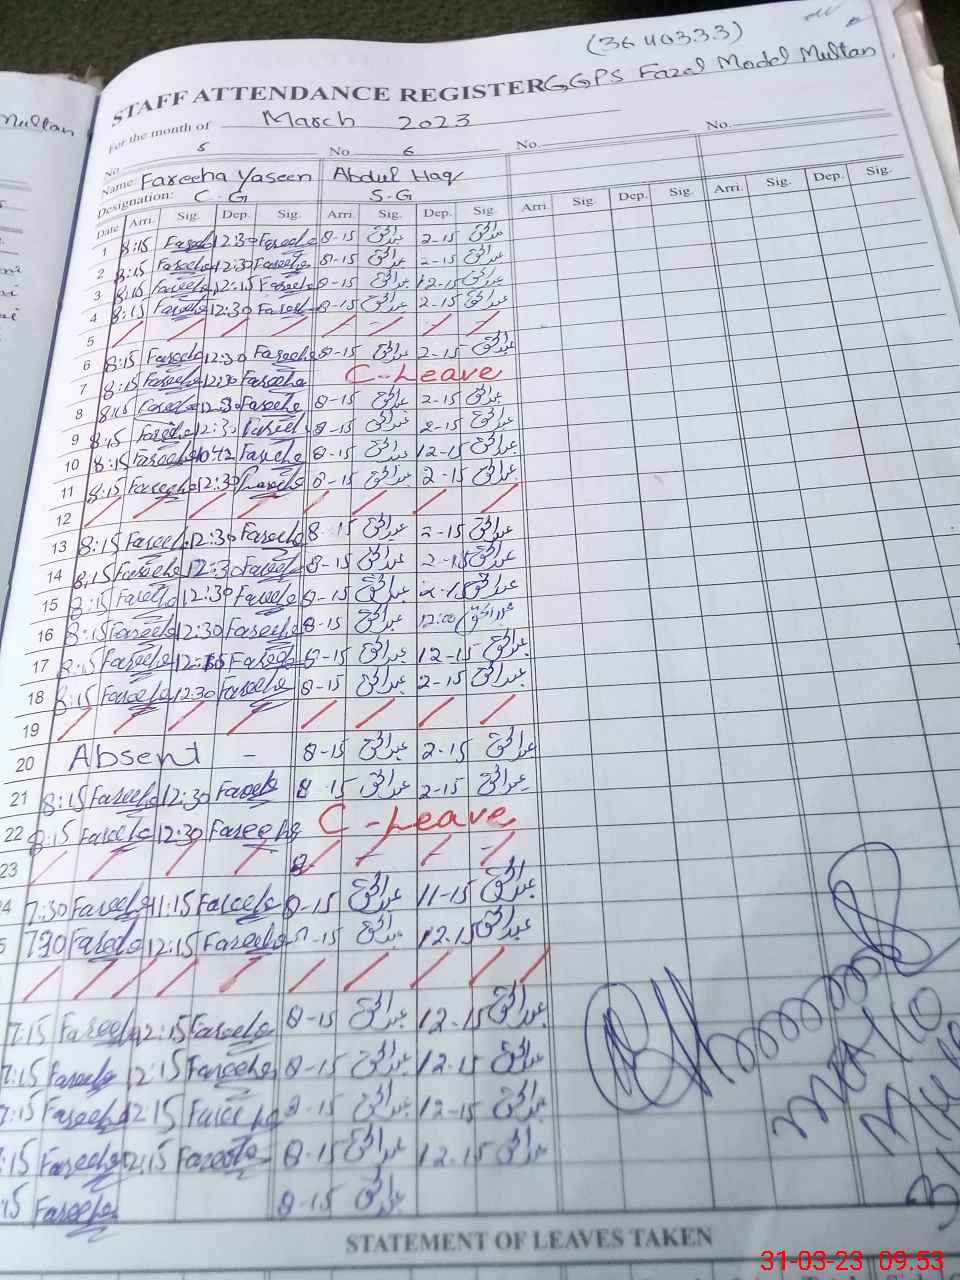 (3640333)
STAFF ATTENDANCE REGISTER GGPS Fazal Model Multan
Multan
For the month of March 2023
No. 5 No. 6 No. No.
Name: Fareeha Yaseen Abdul Haq
Designation: C.G S.G
Date Arri. Sig. Dep. Sig. Arri. Sig. Dep. Sig. Arri. Sig. Dep. Sig. Arri. Sig. Dep. Sig.
1 8:15 Fareeha 12:30 Fareeha 8-15 عبدالحق 2-15 عبدالحق
2 8:15 Fareeha 12:30 Fareeha 8-15 عبدالحق 2-15 عبدالحق
3 8:15 Fareeha 12:15 Fareeha 8-15 عبدالحق 12-15 عبدالحق
4 8:15 Fareeha 12:30 Fareeha 8-15 عبدالحق 2-15 عبدالحق
5
6 8:15 Fareeha 12:30 Fareeha 8-15 عبدالحق 2-15 عبدالحق
7 8:15 Fareeha 12:30 Fareeha C-Leave
8 8:15 Fareeha 12:30 Fareeha 8-15 عبدالحق 2-15 عبدالحق
9 8:15 Fareeha 12:30 Fareeha 8-15 عبدالحق 2-15 عبدالحق
10 8:15 Fareeha Fareeha 8-15 عبدالحق 12-15 عبدالحق
11 8:15 Fareeha 12:30 Fareeha 8-15 عبدالحق 2-15 عبدالحق
12
13 8:15 Fareeha 12:30 Fareeha 8-15 عبدالحق 2-15 عبدالحق
14 8:15 Fareeha 12:30 Fareeha 8-15 عبدالحق 2-15 عبدالحق
15 8:15 Fareeha 12:30 Fareeha 8-15 عبدالحق 2-15 عبدالحق
16 8:15 Fareeha 12:30 Fareeha 8-15 عبدالحق 12:00 عبدالحق
17 8:15 Fareeha 12:15 Fareeha 8-15 عبدالحق 12-15 عبدالحق
18 8:15 Fareeha 12:30 Fareeha 8-15 عبدالحق 2-15 عبدالحق
19
20 Absent - 8-15 عبدالحق 2-15 عبدالحق
21 8:15 Fareeha 12:30 Fareeha 8-15 عبدالحق 2-15 عبدالحق
22 8:15 Fareeha 12:30 Fareeha C-Leave
23 8
24 7:30 Fareeha 11:15 Fareeha 8-15 عبدالحق 11-15 عبدالحق
5 7:30 Fareeha 12:15 Fareeha 8-15 عبدالحق 12-15 عبدالحق
7:15 Fareeha 12:15 Fareeha 8-15 عبدالحق 12-15 عبدالحق
7:15 Fareeha 12:15 Fareeha 8-15 عبدالحق 12-15 عبدالحق
7:15 Fareeha 12:15 Fareeha 8-15 عبدالحق 12-15 عبدالحق
:15 Fareeha 12:15 Fareeha 8-15 عبدالحق 12-15 عبدالحق
:15 Fareeha 8-15 عبدالحق
STATEMENT OF LEAVES TAKEN
31-03-23 09.53